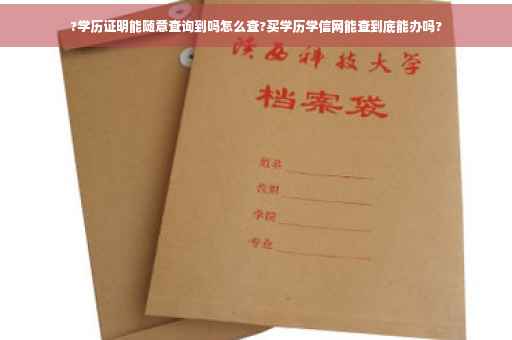 ?学历证明能随意查询到吗怎么查?买学历学信网能查到底能办吗?
陕西科技大学
档案袋
姓名
性别
学院
专业